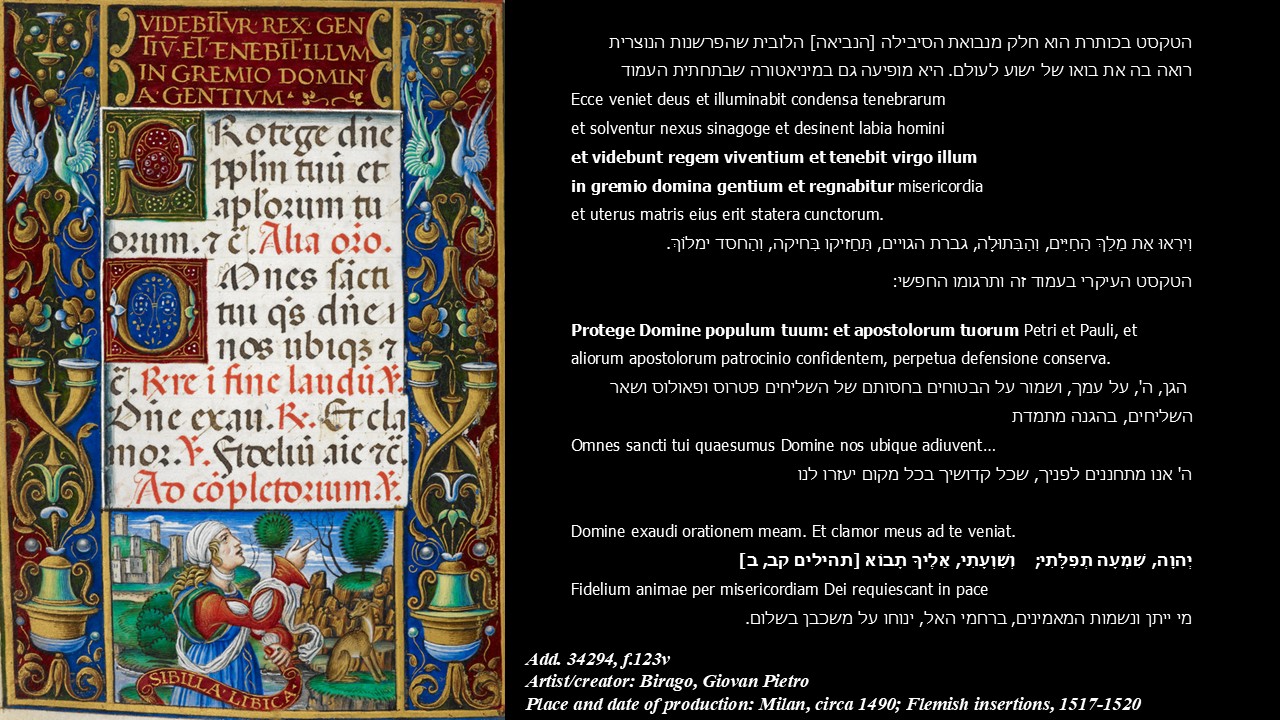 VIDEBITVR REX GEN
TIV̄ ET TENEBIT ILLVM
IN GREMIO DOMIN
A GENTIVM
Rotege dn̄e
pplm̄ tuū et
aplorum tu
orum. ⁊ c̄. Alia oro.
Mnes sācti
tui qs dn̄e
nos ubiqꝫ ⁊
c̄. Rre i fine laudū ℣.
Dn̄e exau. R. Et cla
mor. ℣. Fidelii aie ⁊c̄.
Ad cōpletorium ℣.
SIBILLA LIBICA
הטקסט בכותרת הוא חלק מנבואת הסיבילה [הנביאה] הלובית שהפרשנות הנוצרית
רואה בה את בואו של ישוע לעולם. היא מופיעה גם במיניאטורה שבתחתית העמוד
Ecce veniet deus et illuminabit condensa tenebrarum
et solventur nexus sinagoge et desinent labia homini
et videbunt regem viventium et tenebit virgo illum
in gremio domina gentium et regnabitur misericordia
et uterus matris eius erit statera cunctorum.
וְיִרְאוּ אֵת מֶלֶךְ הַחַיִּים, וְהַבְּתוּלָה, גברת הגויים, תַּחֲזִיקוֹ בְּחֵיקה, וְהַחסד ימלוֹךְ.
הטקסט העיקרי בעמוד זה ותרגומו החפשי:
Protege Domine populum tuum: et apostolorum tuorum Petri et Pauli, et
aliorum apostolorum patrocinio confidentem, perpetua defensione conserva.
הגן, ה', על עמך, ושמור על הבטוחים בחסותם של השליחים פטרוס ופאולוס ושאר
השליחים, בהגנה מתמדת
Omnes sancti tui quaesumus Domine nos ubique adiuvent...
ה' אנו מתחננים לפניך, שכל קדושיך בכל מקום יעזרו לנו
Domine exaudi orationem meam. Et clamor meus ad te veniat.
יְהוָה, שִׁמְעָה תְפִלָּתִי; וְשַׁוְעָתִי, אֵלֶיךָ תָבוֹא [תהילים קב, ב]
Fidelium animae per misericordiam Dei requiescant in pace
מי ייתן ונשמות המאמינים, ברחמי האל, ינוחו על משכבן בשלום.
Add. 34294, f.123v
Artist/creator: Birago, Giovan Pietro
Place and date of production: Milan, circa 1490; Flemish insertions, 1517-1520